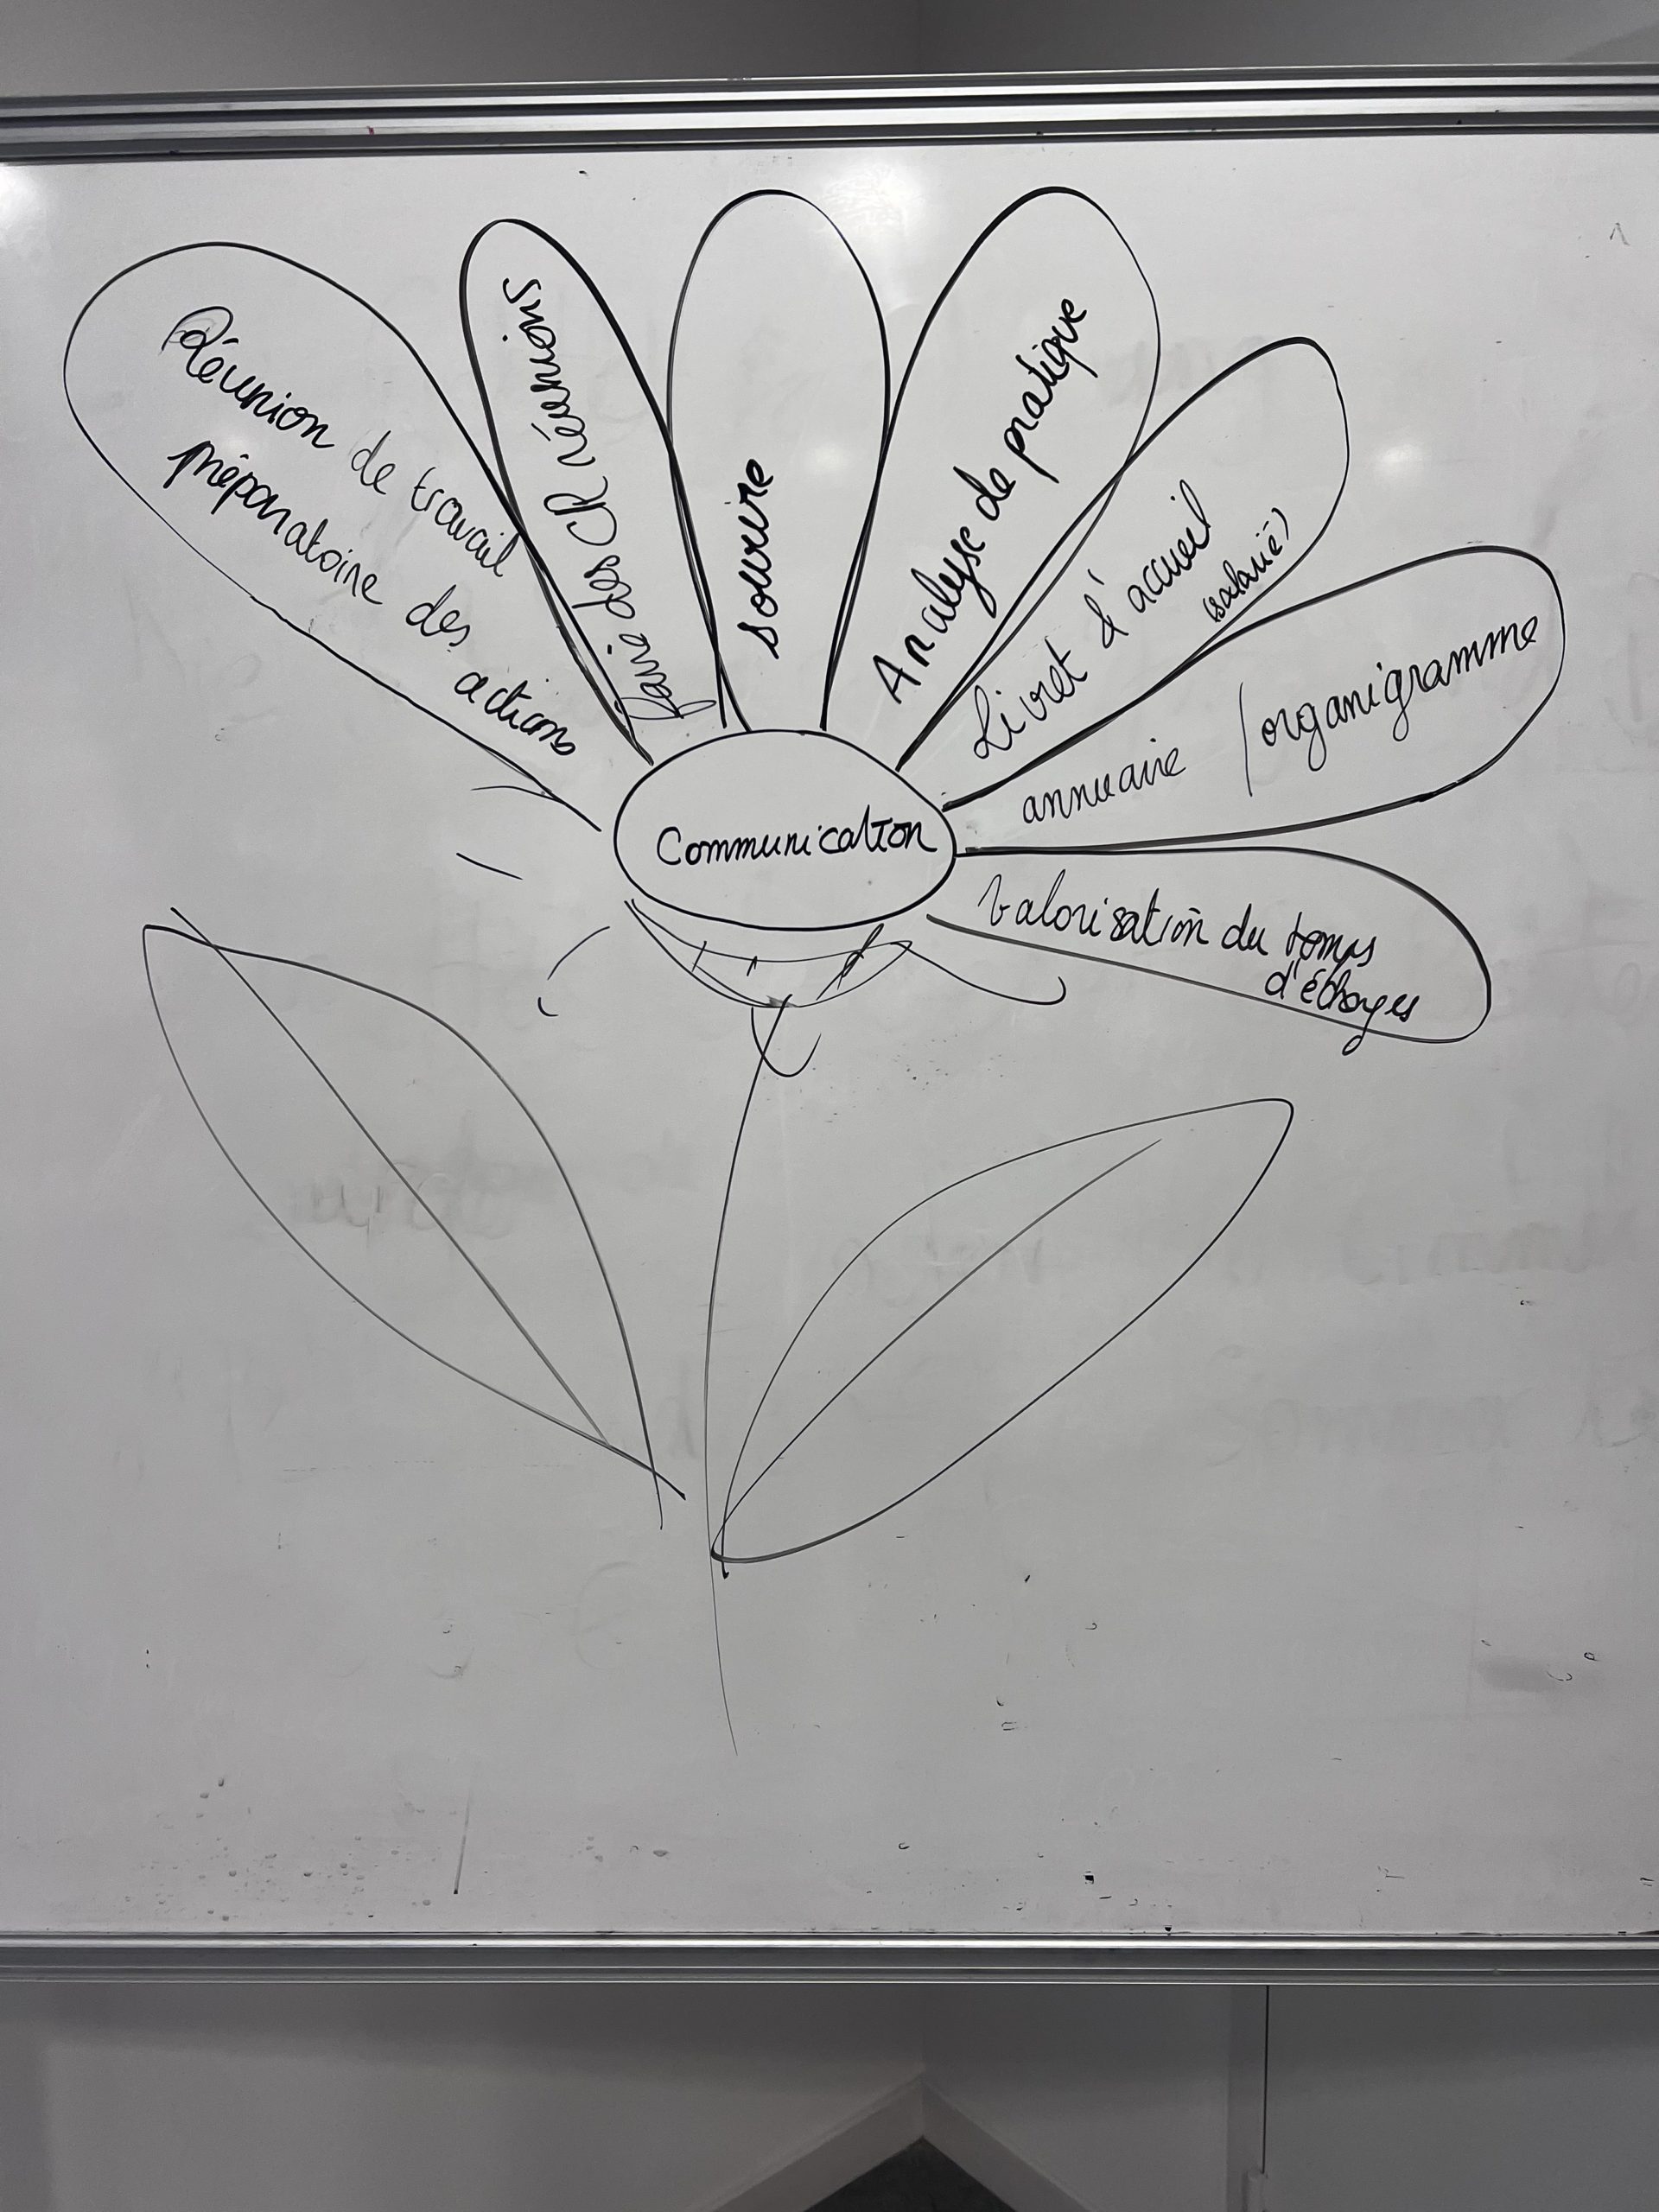 Réunion de travail
préparatoire des
actions
faire des CR réunions
sourire
Analyse de pratique
Livret d'accueil
(salarié)
annuaire / organigramme
Valorisation du temps
d'échanges
Communication